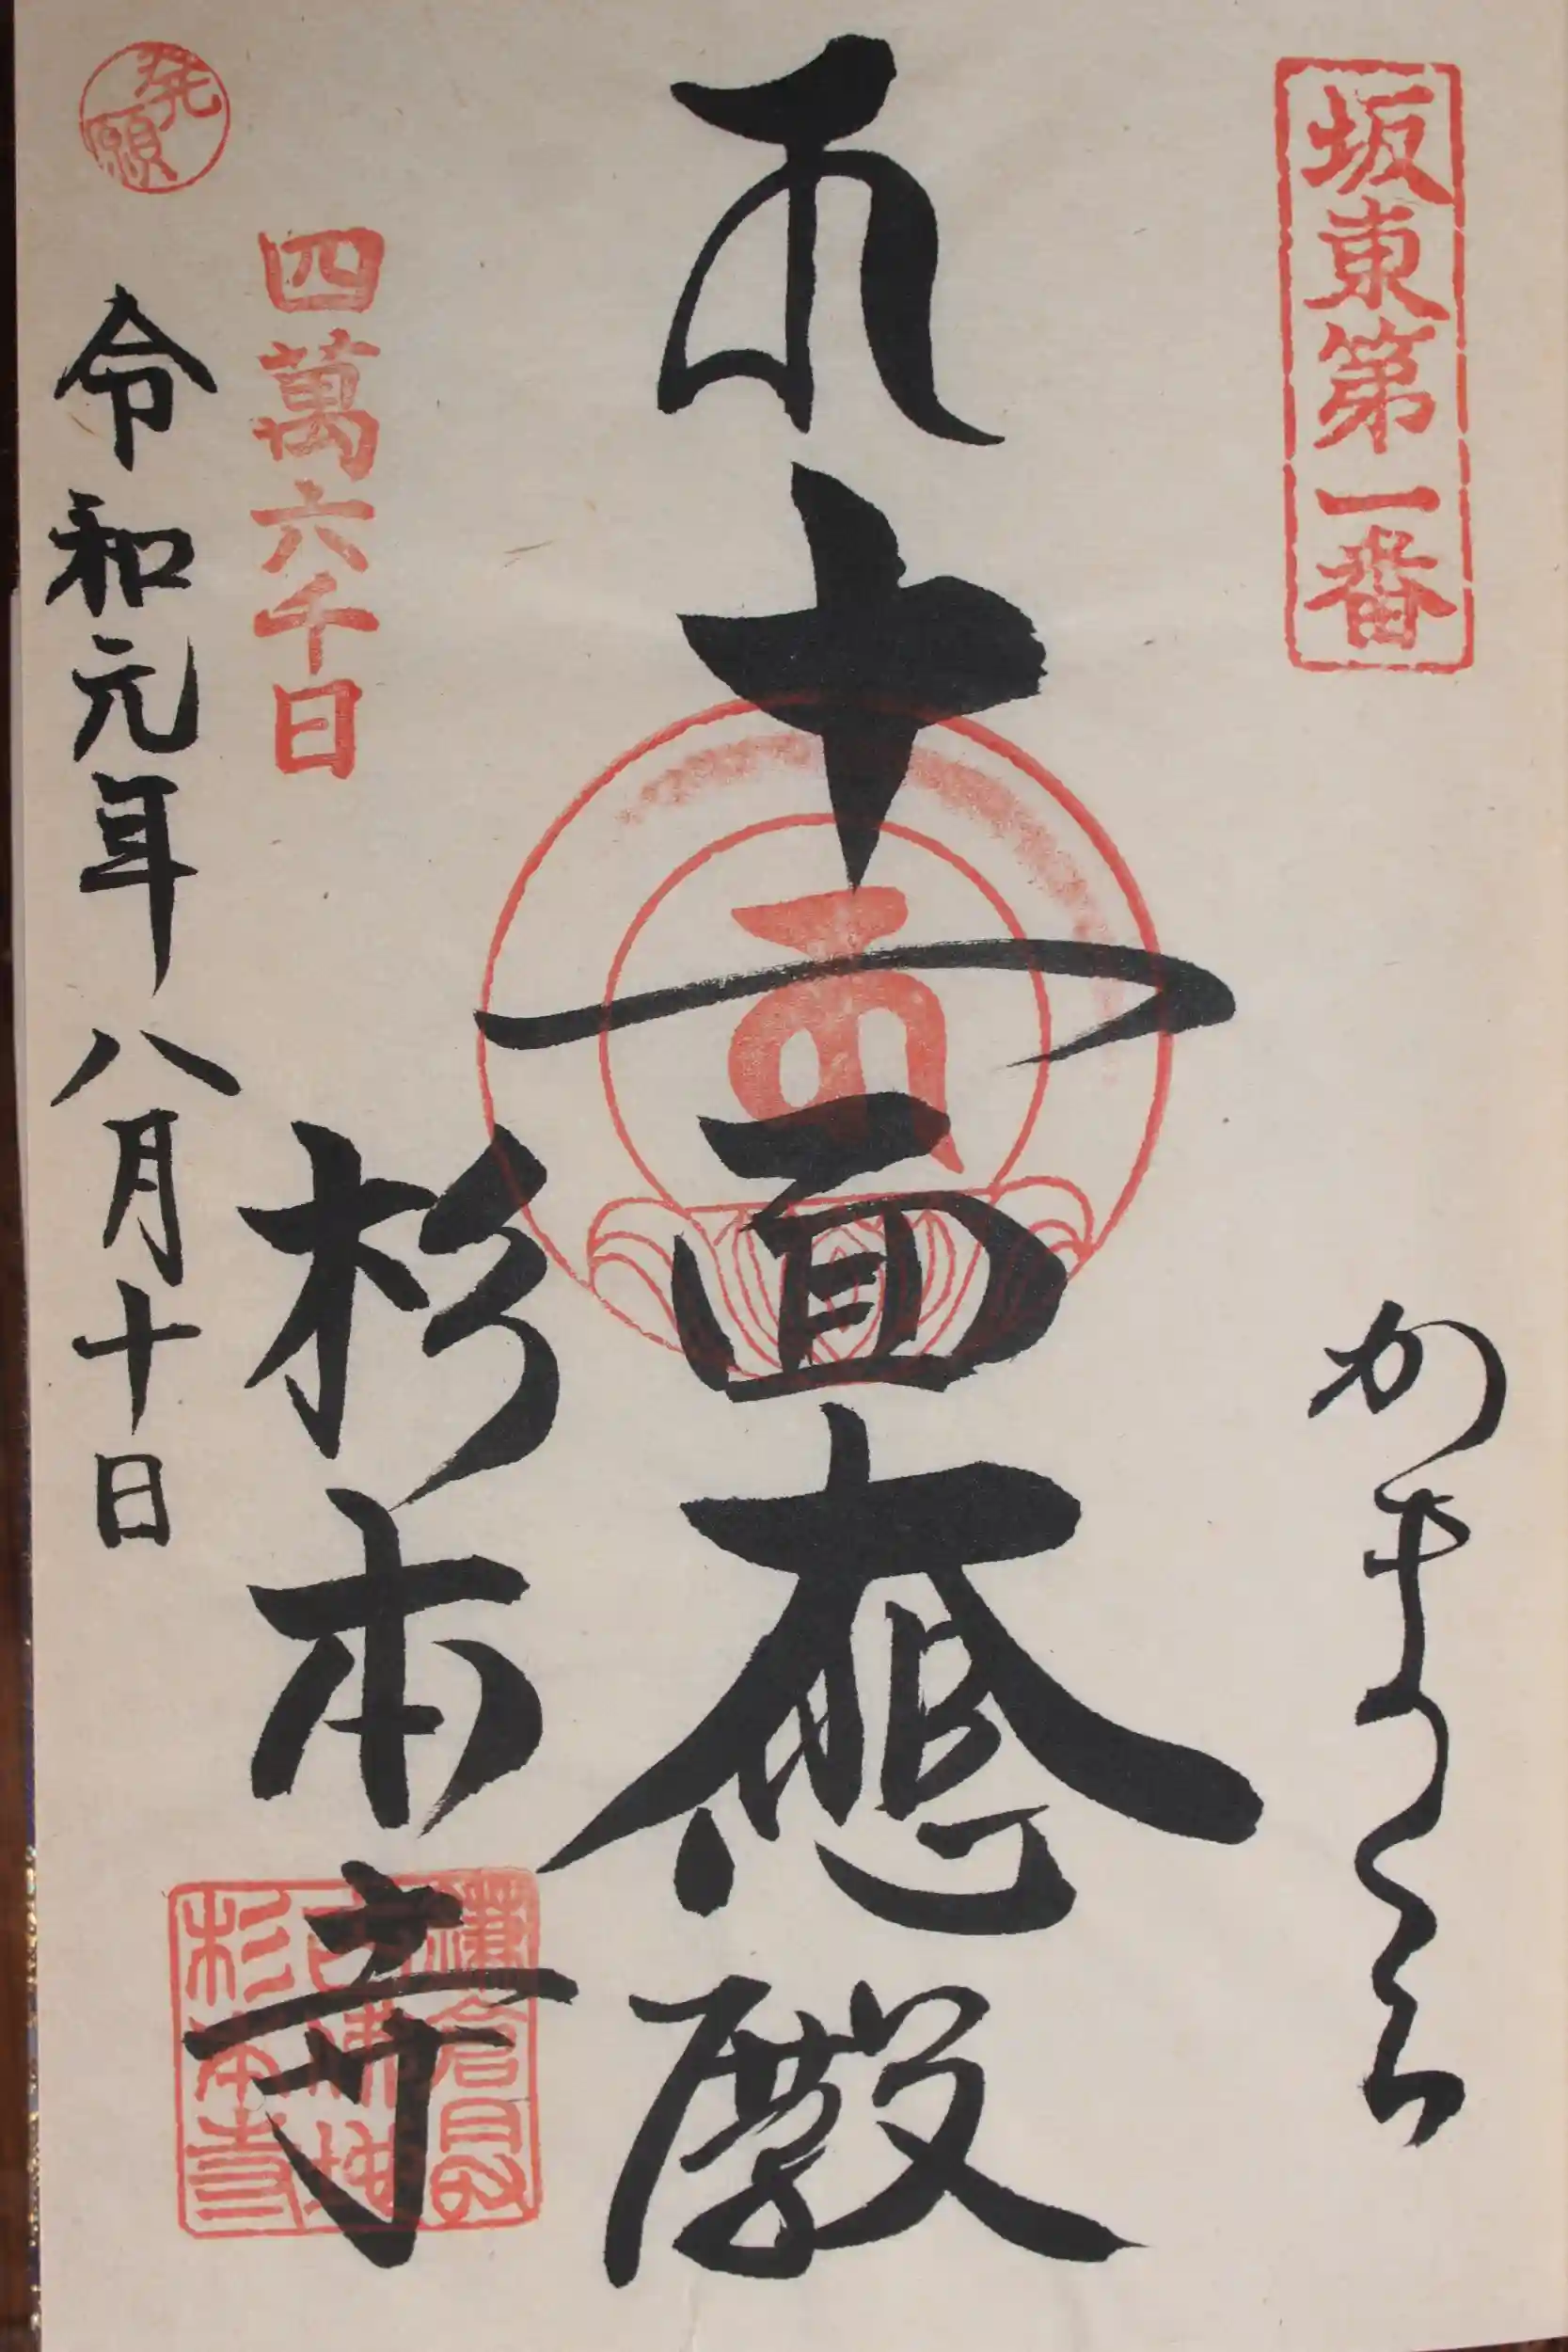 坂東第一番
かまくら
十一面大悲殿
杉本寺
鎌倉最
古佛地
杉本寺
四萬六千日
発願
令和元年八月十日